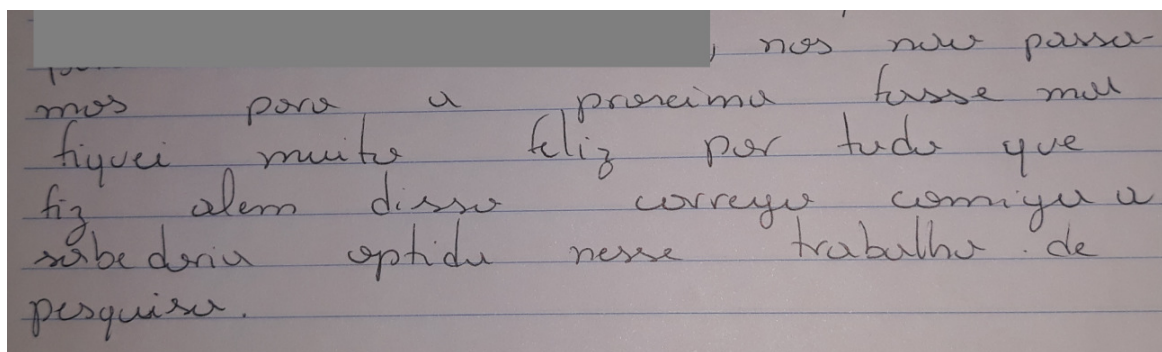 , nos não passa-
mos para a proxeima fasse mal
fiquei muito feliz por tudo que
fiz alem disso corrego comigo a
sabedoria optida nesse trabalho de
pesquisa.